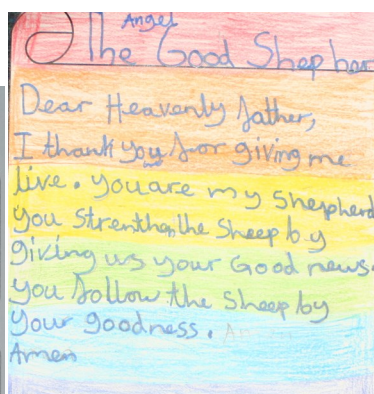 Angel
The Good Shepher
Dear Heavenly father,
I thank you for giving me
live. you are my Shepherd
you strenthen the sheep by
giving us your Good news.
you follow the sheep by
your goodness.
Amen